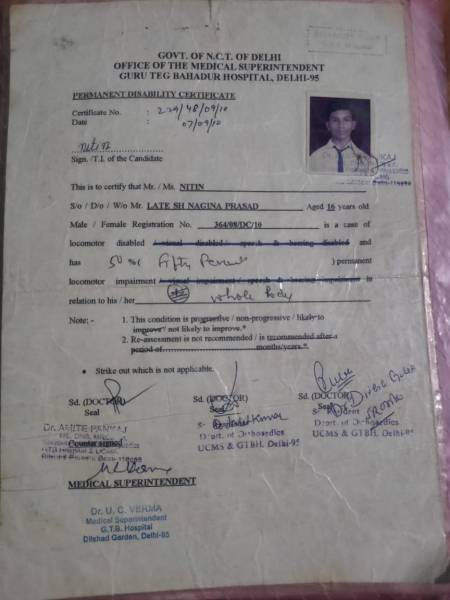 GOVT. OF N.C.T. OF DELHI
OFFICE OF THE MEDICAL SUPERINTENDENT
GURU TEG BAHADUR HOSPITAL, DELHI-95
PERMANENT DISABILITY CERTIFICATE
Certificate No. : 229/48/09/10
Date : 07/09/10
Nitin
Sign. /T.I. of the Candidate
This is to certify that Mr. / Ms. NITIN
S/o / D/o / W/o Mr. LATE SH NAGINA PRASAD Aged 16 years old
Male / Female Registration No. 364/08/DC/10 is a case of
locomotor disabled / visual disabled / speech & hearing disabled and
has 50 % ( Fifty Percent ) permanent
locomotor impairment / visual impairment / speech & hearing impairment in
relation to his / her whole body
Note: - 1. This condition is progressive / non-progressive / likely to
improve / not likely to improve.*
2. Re-assessment is not recommended / is recommended after a
period of months/years.*
• Strike out which is not applicable.
Sd. (DOCTOR) Sd. (DOCTOR) Sd. (DOCTOR)
Seal Seal Seal
Deptt. of Orthopedics Deptt. of Orthopedics
UCMS & GTBH, Delhi-95 UCMS & GTBH, Delhi-95
Counter signed
MEDICAL SUPERINTENDENT
Dr. U. C. VERMA
Medical Superintendent
G.T.B. Hospital
Dilshad Garden, Delhi-95